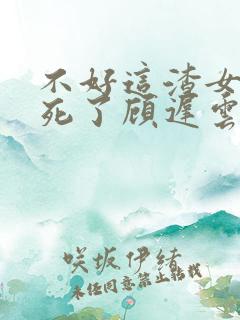 不好這渣女
死了顾遲雲
咲坂伊緒
未经同意禁止轉載